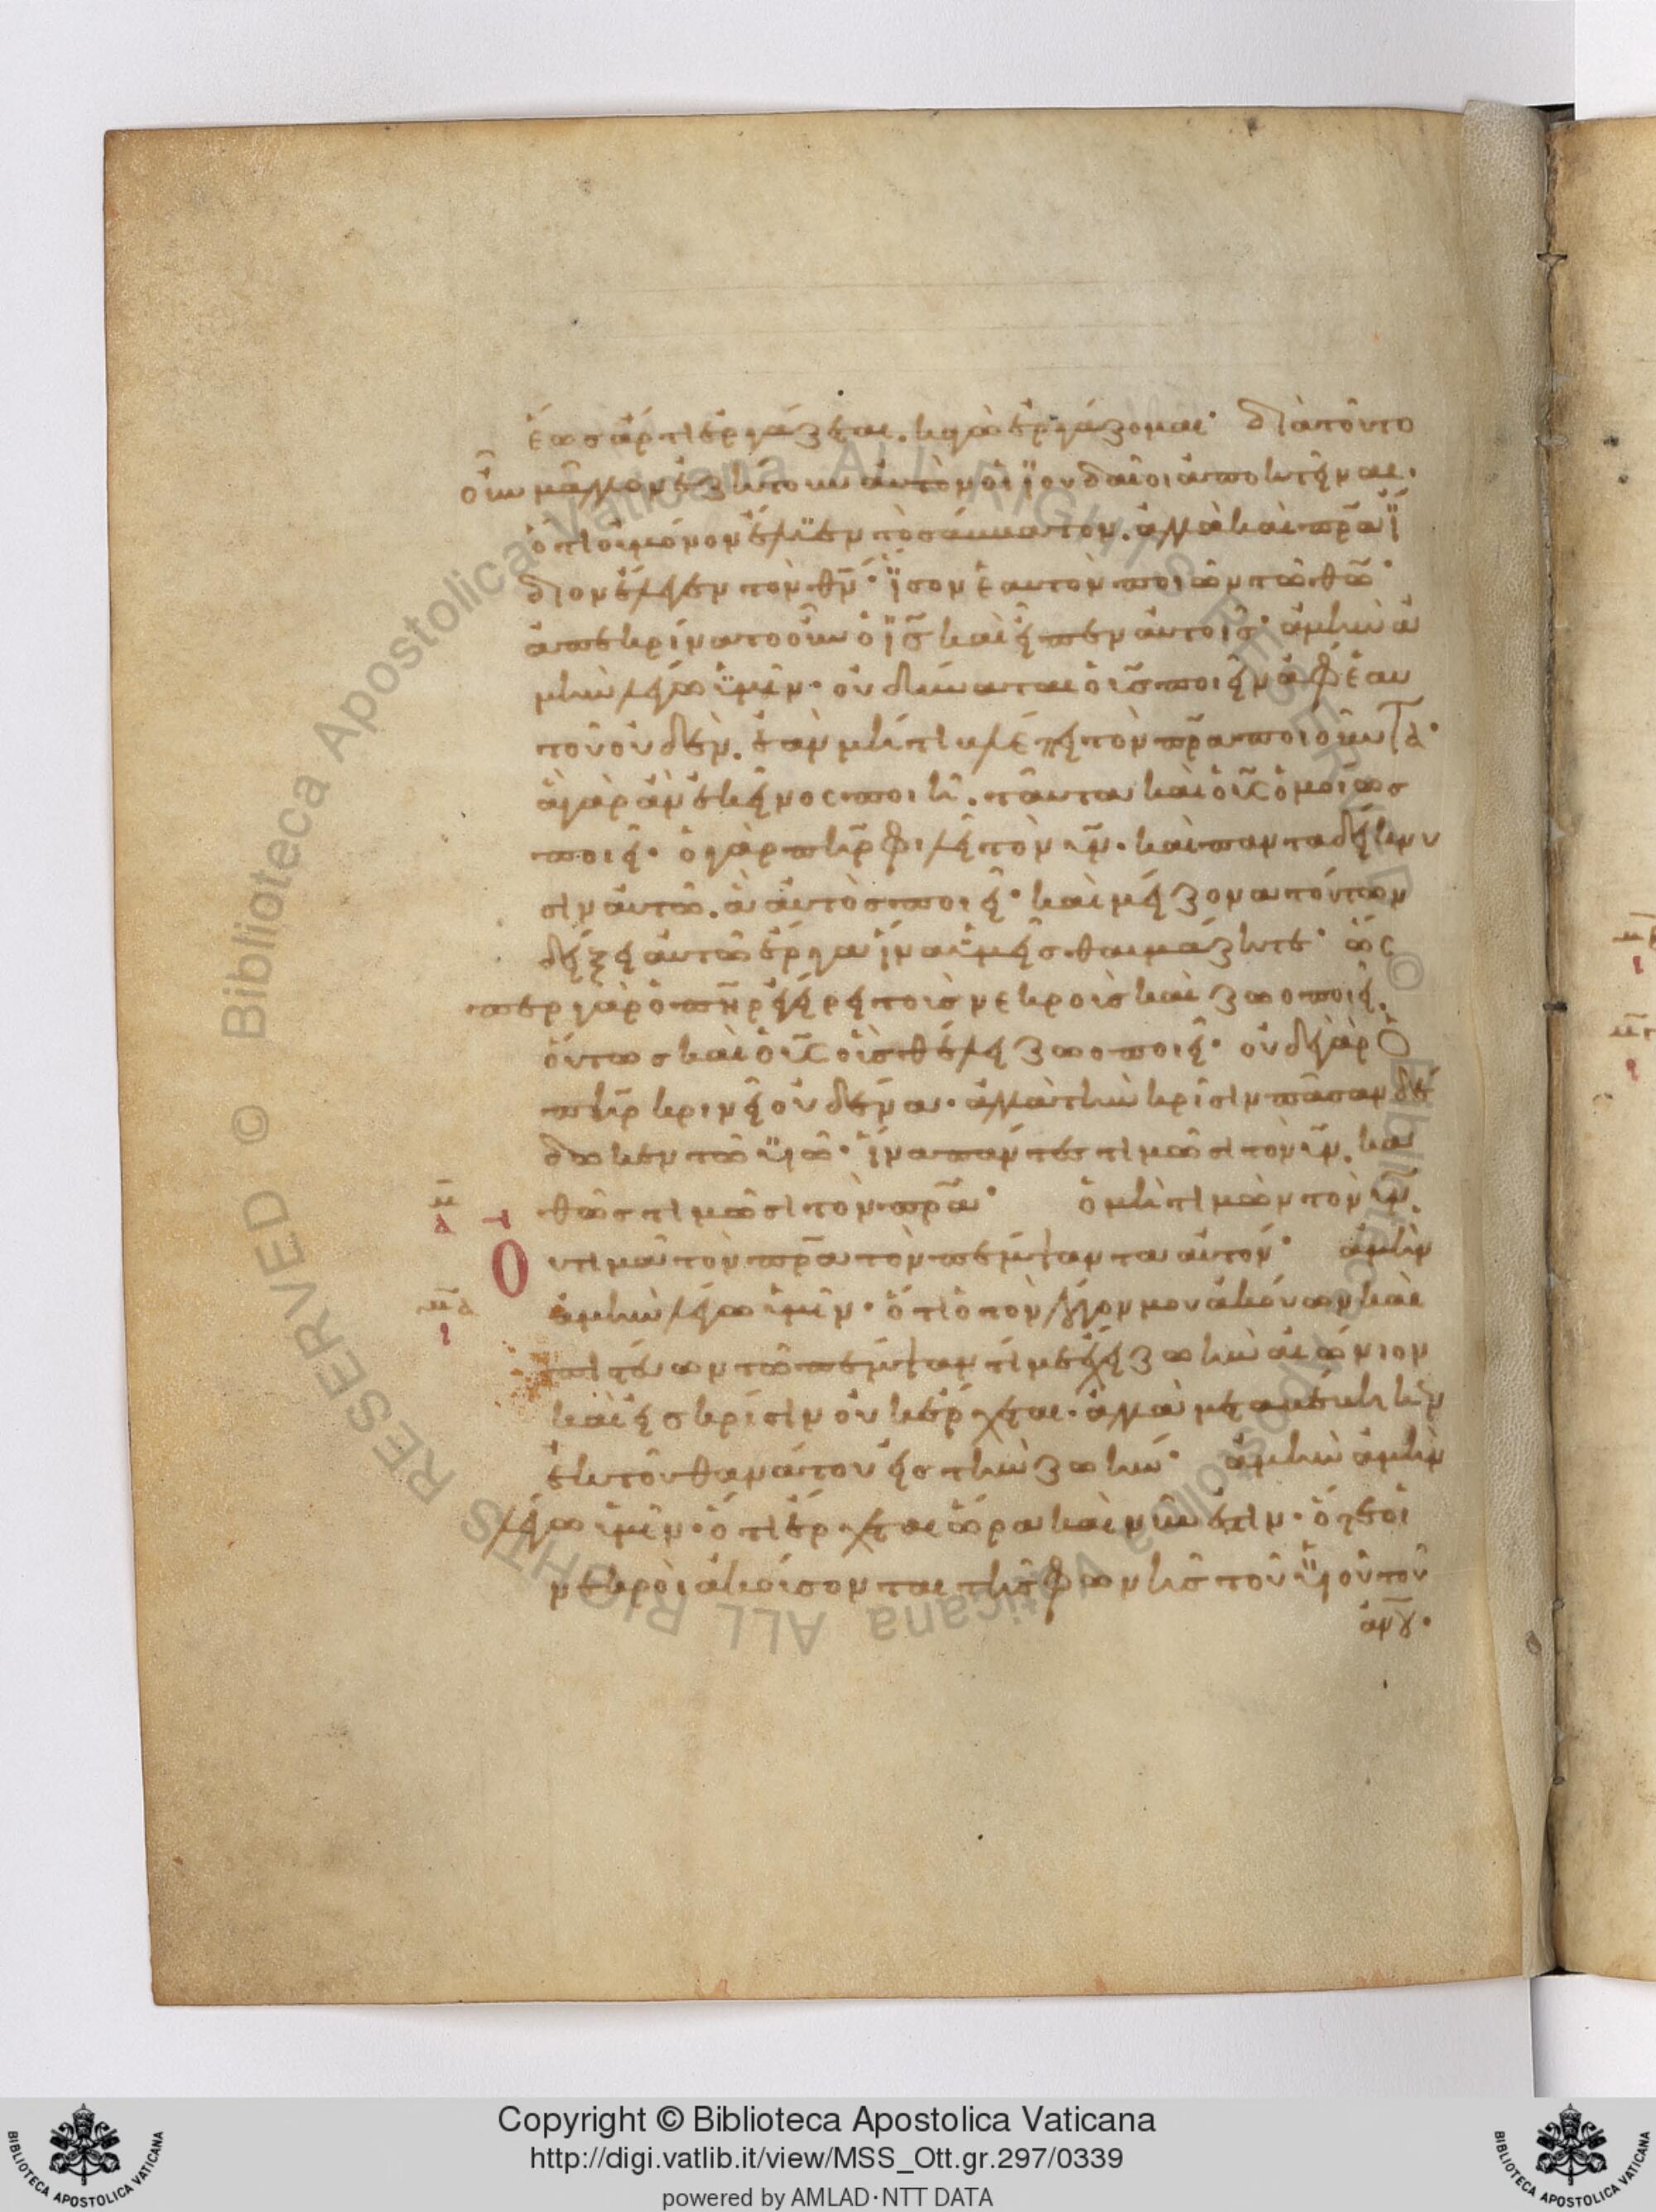 ἕως ἄρτι ἐργάζεται. κἀγὼ ἐργάζομαι· διὰ τοῦτο
οὖν μᾶλλον ἐζήτουν αὐτὸν οἱ ϊουδαῖοι ἀποκτεῖναι.
ὅτι οὐ μόνον ἔλυεν τὸ σάββατον. ἀλλὰ καὶ πρ̅α ΐ
διον ἔλεγεν τὸν θν̅· ΐσον ἑαυτὸν ποιῶν τῶ θω̅·
ἀπεκρίνατο οὖν ὁ ις̅ καὶ εἶπεν αὐτοῖς· ἀμὴν ἀ
μὴν λέγω ὑμῖν· οὐ δύναται ὁ υς̅ ποιεῖν ἀφ' ἑαυ
τοῦ οὐδὲν. ἐὰν μή τι βλέπει τὸν πρ̅α ποιοῦντα·
ἃ γὰρ ἂν ἐκεῖνος ποιῆ. ταῦτα καὶ ὁ υς̅ ὁμοίως
ποιεῖ· ὁ γὰρ πηρ̅ φιλεῖ τὸν υν̅· καὶ πάντα δείκνυ
σιν αὐτῶ. ἃ αὐτὸς ποιεῖ· καὶ μείζονα τούτων
δείξει αὐτῶ ἔργα ἵνα ὑμεῖς θαυμάζητε· ὥς
περ γὰρ ὁ πηρ̅ ἐγείρει τοὺς νεκροὺς καὶ ζωοποιεῖ.
οὕτως καὶ ὁ υς̅ οὓς θέλει ζωοποιεῖ· οὐδὲ γὰρ ὁ
πηρ̅ κρινεῖ οὐδένα· ἀλλὰ τὴν κρίσιν πᾶσαν δέ
δωκεν τῶ υἱῶ· ἵνα πάντες τιμῶσι τὸν υν̅. κα
θὼς τιμῶσι τὸν πρ̅α· ὁ μὴ τιμῶν τὸν υν̅.
Ου τιμᾶ τὸν πρ̅α τὸν πέμψαντα αὐτόν· ἀμὴν
ἀμὴν λέγω ὑμῖν· ὅτι ὁ τὸν λόγον μου ἀκούων καὶ
πιστεύων τῶ πέμψαντί με ἔχει ζωὴν αἰώνιον
καὶ εἰς κρίσιν οὐκ ἔρχεται· ἀλλὰ μεταβέβηκεν
ἐκ τοῦ θανάτου εἰς τὴν ζωήν· ἀμὴν ἀμὴν
λέγω ὑμῖν· ὅτι ἔρχεται ὥρα καὶ νῦν ἐστιν· ὅτε οἱ
νεκροὶ ἀκούσονται τῆς φωνῆς τοῦ υἱοῦ τοῦ
ἀνου̅·
Copyright © Biblioteca Apostolica Vaticana
http://digi.vatlib.it/view/MSS_Ott.gr.297/0339
powered by AMLAD·NTT DATA
BIBLIOTECA APOSTOLICA VATICANA
BIBLIOTECA APOSTOLICA VATICANA
© Biblioteca Apostolica Vaticana ALL RIGHTS RESERVED
© Biblioteca Apostolica Vaticana ALL RIGHTS RESERVED